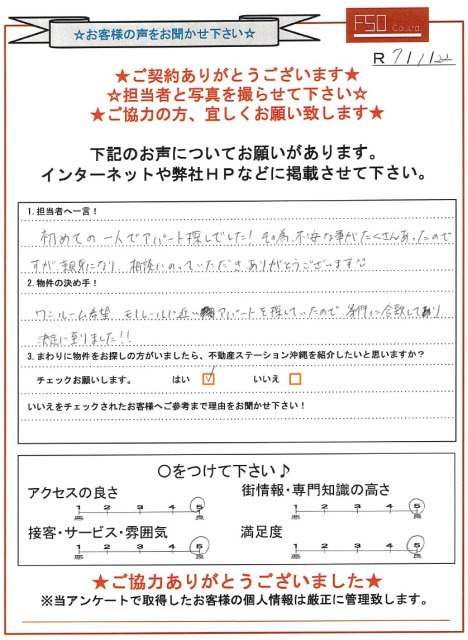 ☆お客様の声をお聞かせ下さい☆
FSO Co.,Ltd.
R 7/1/22
★ご契約ありがとうございます★
☆担当者と写真を撮らせて下さい☆
★ご協力の方、宜しくお願い致します★
下記のお声についてお願いがあります。
インターネットや弊社HPなどに掲載させて下さい。
1. 担当者へ一言！
初めての一人でアパート探しでした！その為、不安な事がたくさんあったので
すが、親身になり、相談にのっていただき、ありがとうございます
2. 物件の決め手！
ワンルーム希望、モノレールに近いアパートを探していたので、条件に合致しており
決定に至りました!!
3. まわりに物件をお探しの方がいましたら、不動産ステーション沖縄を紹介したいと思いますか？
チェックお願いします。 はい ☑ いいえ □
いいえをチェックされたお客様へご参考まで理由をお聞かせ下さい！
〇をつけて下さい♪
アクセスの良さ 街情報・専門知識の高さ
1 2 3 4 5 1 2 3 4 5
悪 良 悪 良
接客・サービス・雰囲気 満足度
1 2 3 4 5 1 2 3 4 5
悪 良 悪 良
★ご協力ありがとうございました★
※当アンケートで取得したお客様の個人情報は厳正に管理致します。